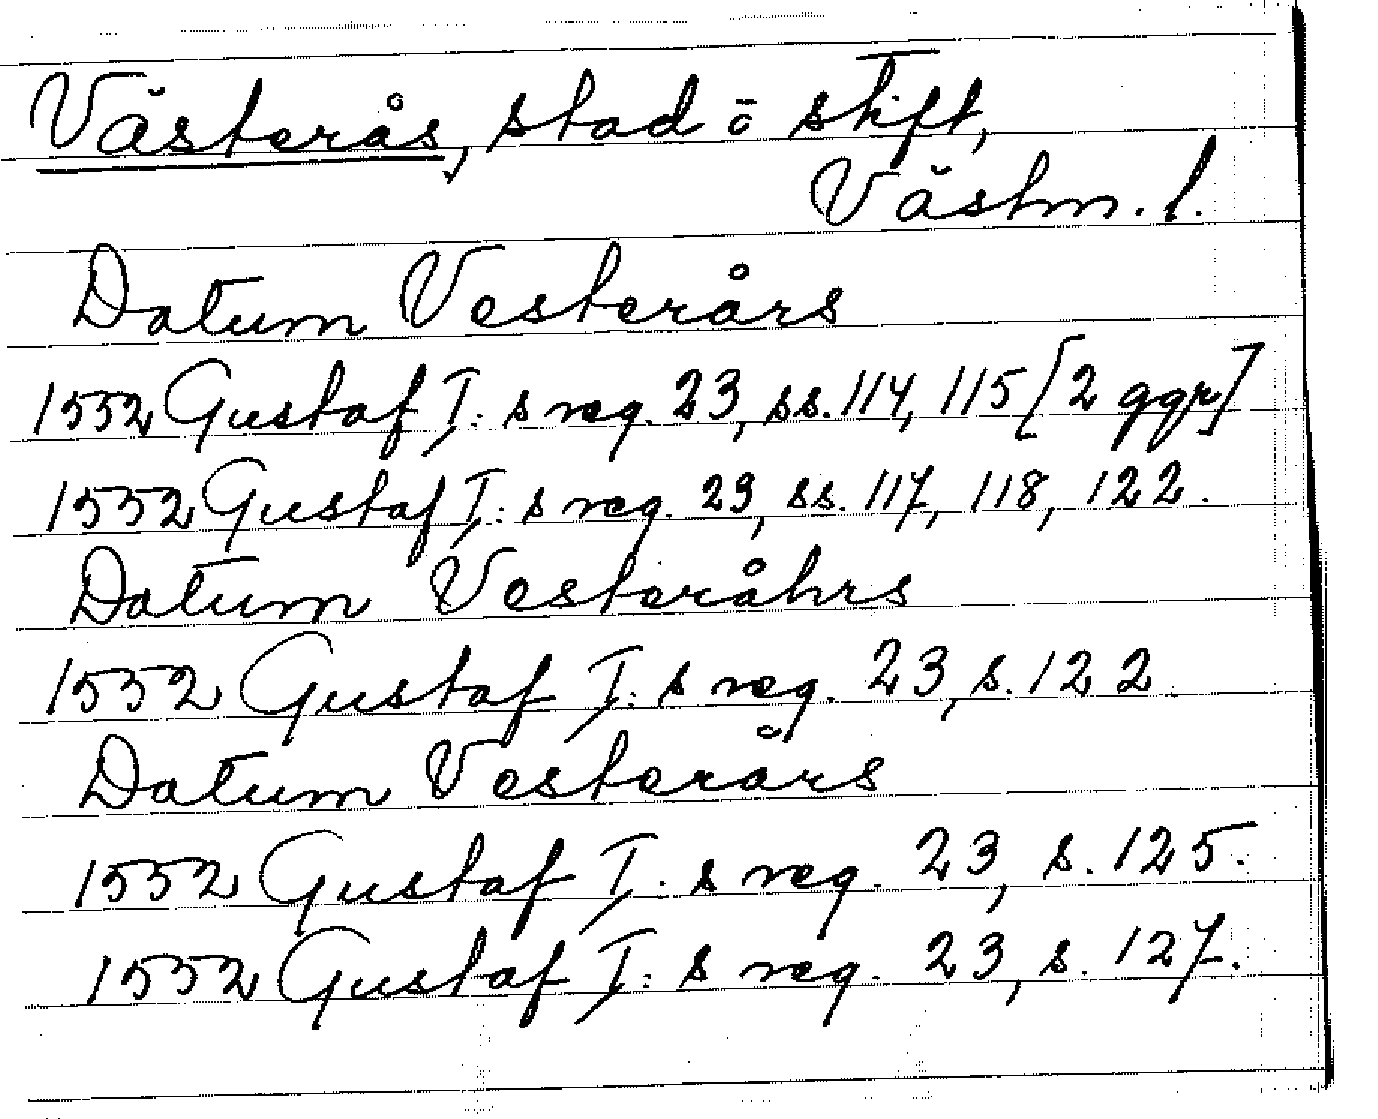 Västerås, stad o stift,
Västm. l.
Datum Vesterårs
1552 Gustaf I: s reg. 23, ss. 114, 115 [2 ggr]
1552 Gustaf I: s reg. 23, ss. 117, 118, 122.
Datum Vesteråhrs
1552 Gustaf I: s reg. 23, s. 122.
Datum Vesterårs
1552 Gustaf I: s reg. 23, s. 125.
1552 Gustaf I: s reg. 23, s. 127.